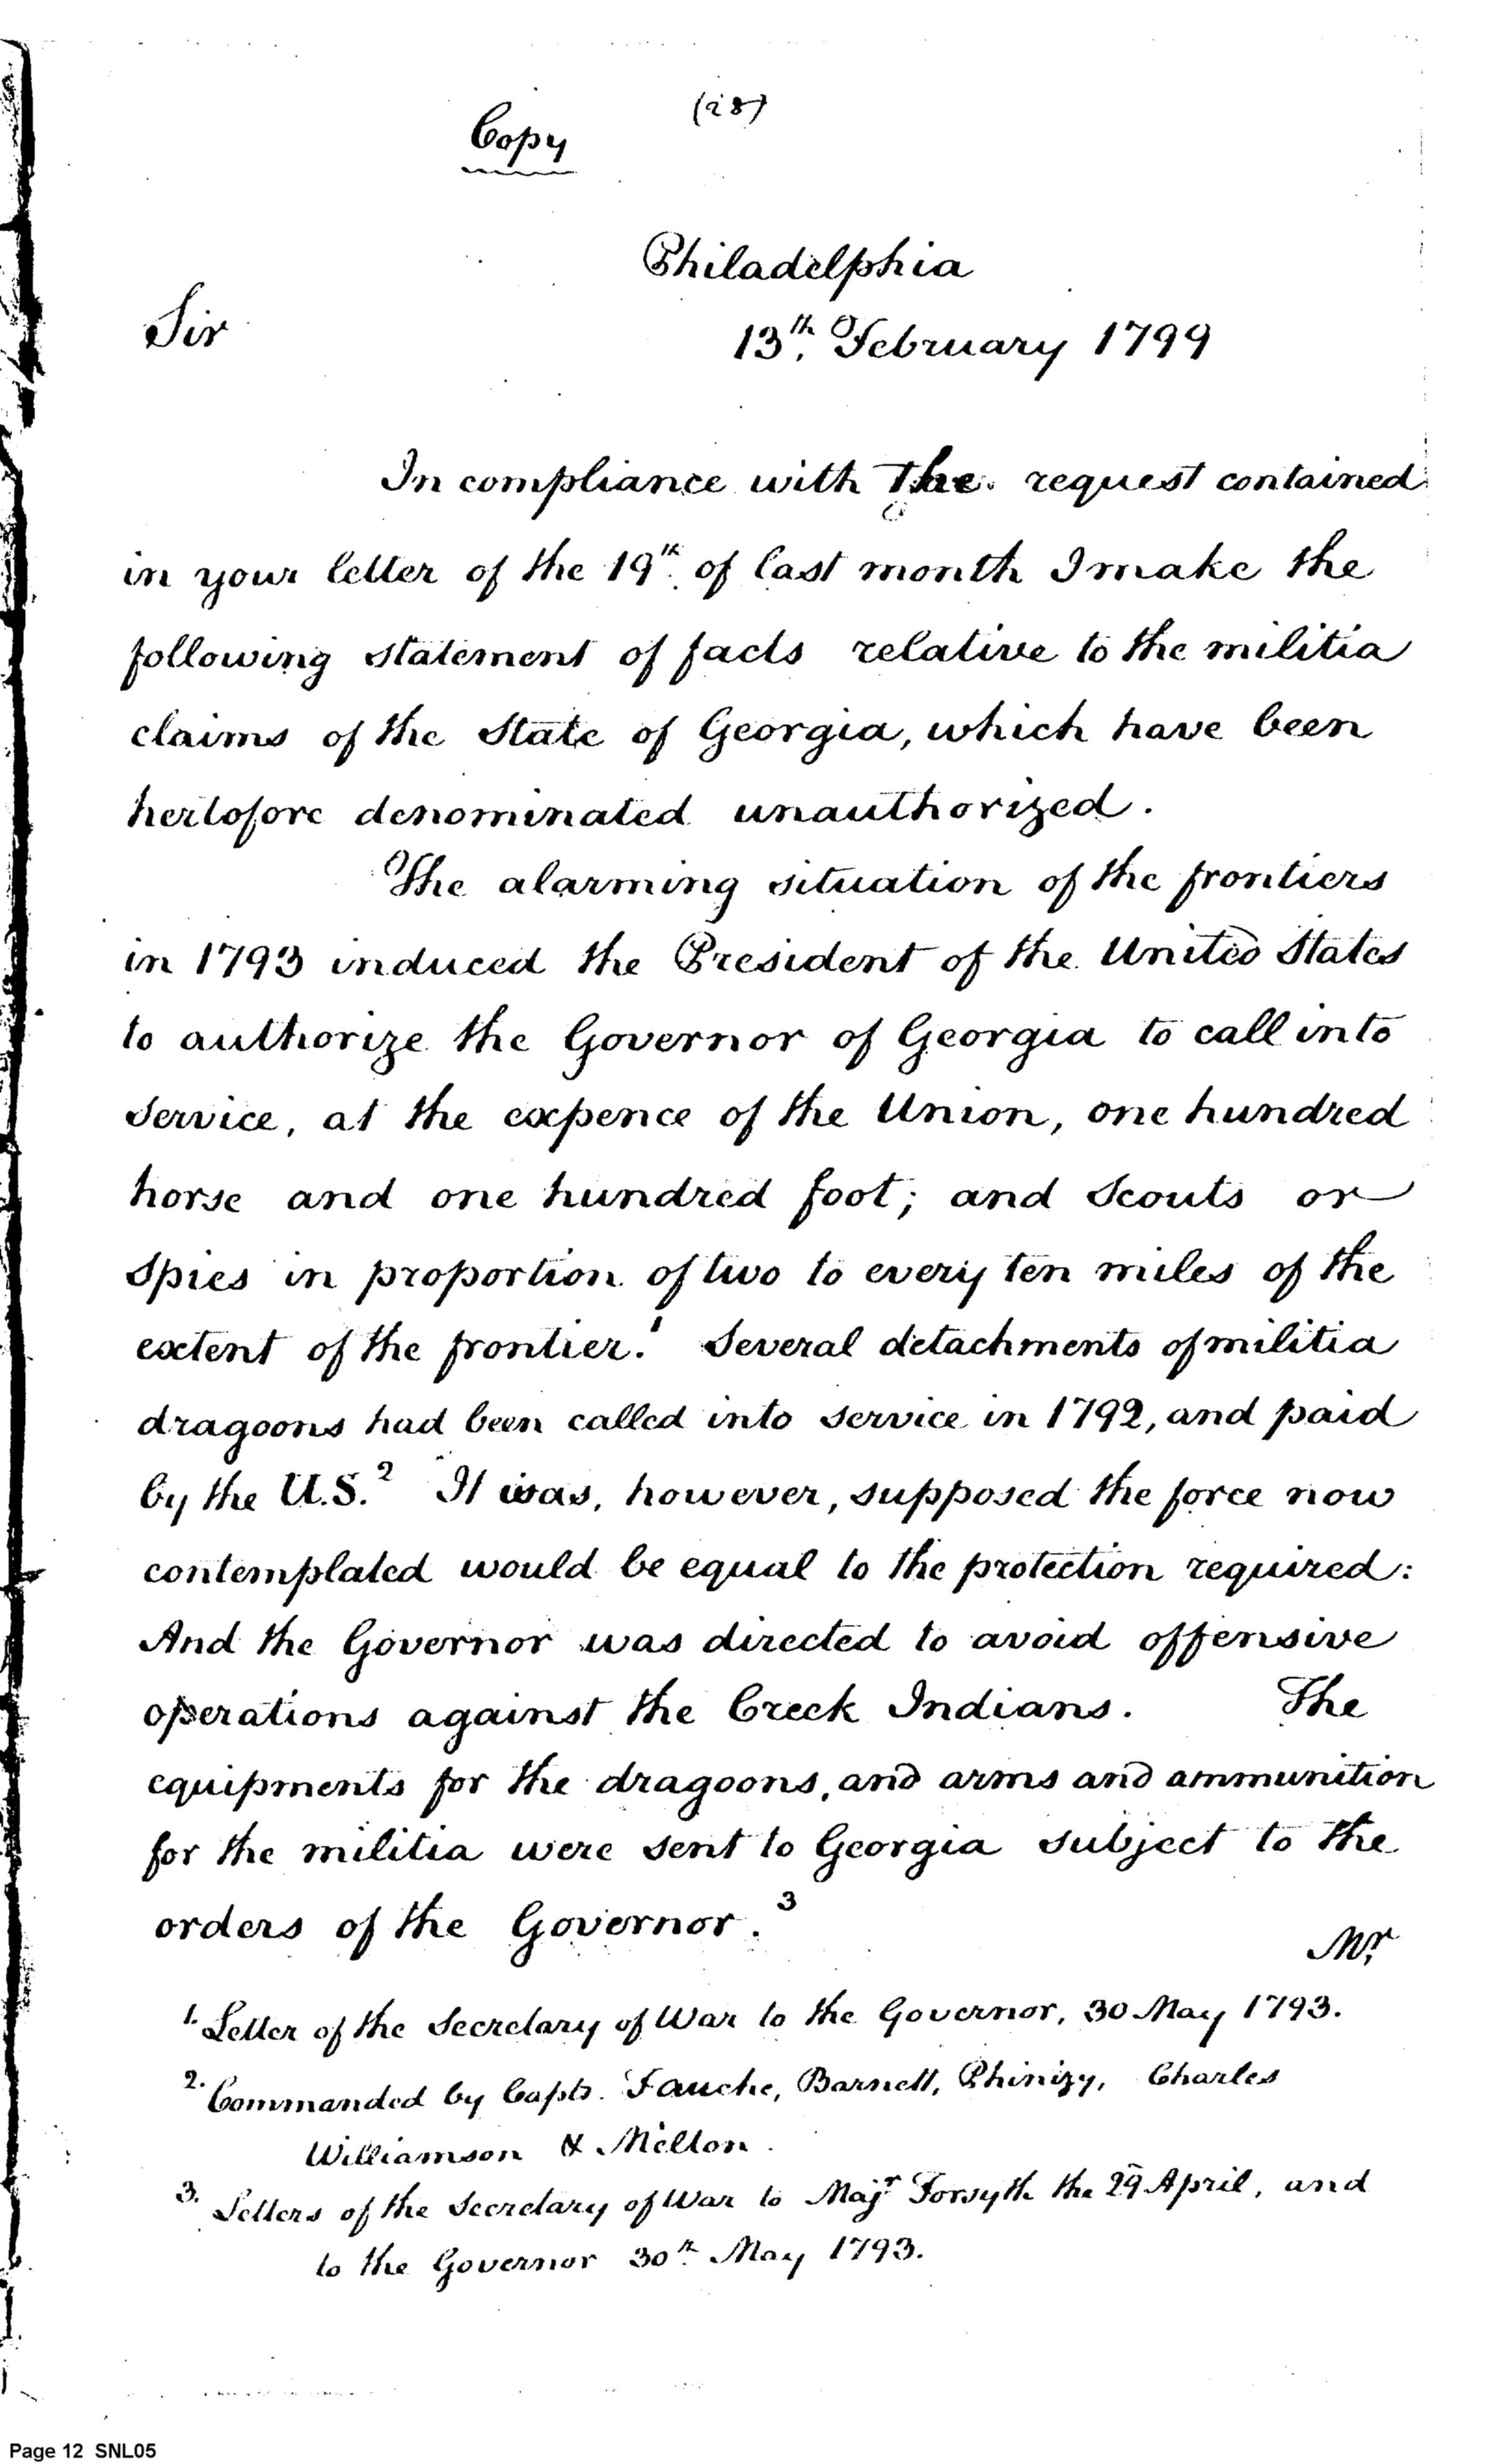 (28)
Copy
Philadelphia
Sir
13th. February 1799
In compliance with the request contained
in your letter of the 19th. of last month I make the
following statement of facts relative to the militia
claims of the State of Georgia, which have been
hertofore denominated unauthorized.
The alarming situation of the frontiers
in 1793 induced the President of the United States
to authorize the Governor of Georgia to call into
service, at the expence of the Union, one hundred
horse and one hundred foot; and Scouts or
Spies in proportion of two to every ten miles of the
extent of the frontier.1 Several detachments of militia
dragoons had been called into service in 1792, and paid
by the U.S.2 It was, however, supposed the force now
contemplated would be equal to the protection required:
And the Governor was directed to avoid offensive
operations against the Creek Indians. The
equipments for the dragoons, and arms and ammunition
for the militia were sent to Georgia subject to the
orders of the Governor.3
Mr.
1. Letter of the Secretary of War to the Governor, 30 May 1793.
2. Commanded by Capts. Fauche, Barnett, Phinizy, Charles
Williamson & Melton.
3. Letters of the Secretary of War to Majr Forsyth the 29 April, and
to the Governor 30th. May 1793.
Page 12 SNL05